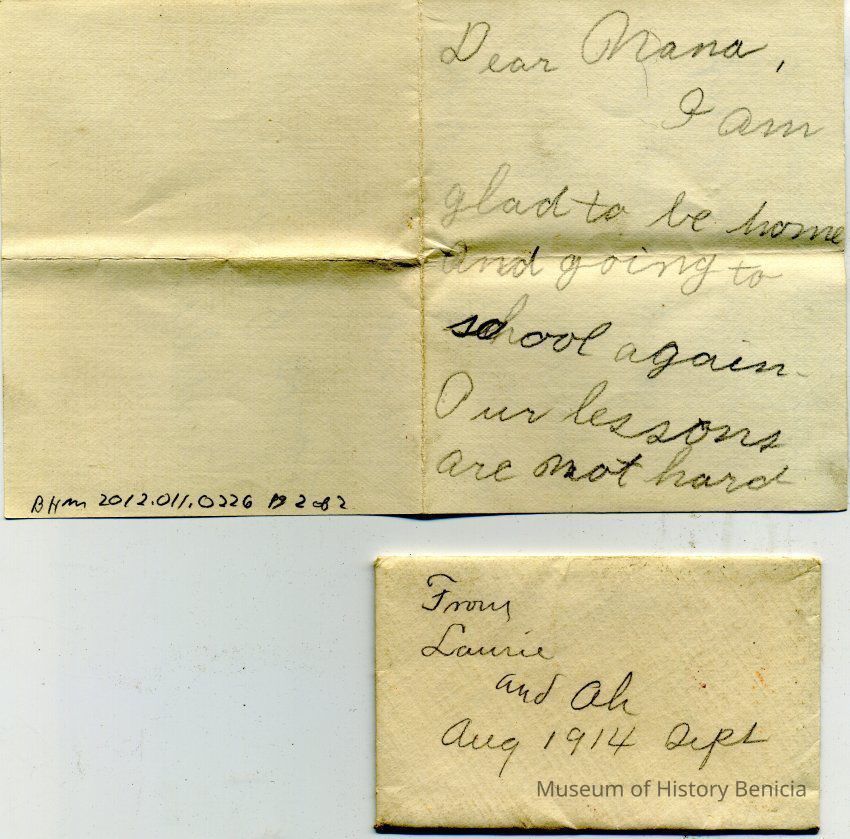 Dear Nana,
I am
glad to be home
and going to
school again.
Our lessons
are not hard
BHM 2012.011.0226 B 2 of 2
From
Laurie
and Ah
Aug 1914 Sept
Museum of History Benicia